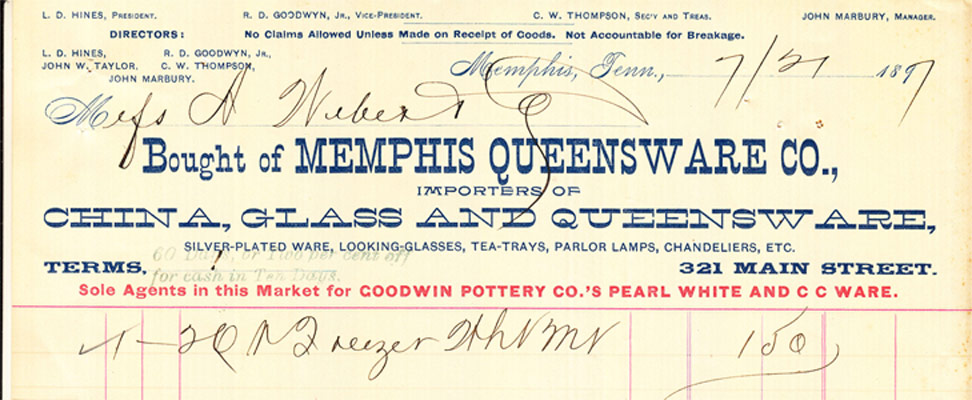 L. D. HINES, PRESIDENT. R. D. GOODWYN, JR., VICE-PRESIDENT. C. W. THOMPSON, SEC'Y AND TREAS. JOHN MARBURY, MANAGER.
DIRECTORS: No Claims Allowed Unless Made on Receipt of Goods. Not Accountable for Breakage.
L. D. HINES, R. D. GOODWYN, JR.,
JOHN W. TAYLOR. C. W. THOMPSON,
JOHN MARBURY.
Memphis, Tenn., 7/21 1897
Mess A Weber
Bought of MEMPHIS QUEENSWARE CO.,
IMPORTERS OF
CHINA, GLASS AND QUEENSWARE,
SILVER-PLATED WARE, LOOKING-GLASSES, TEA-TRAYS, PARLOR LAMPS, CHANDELIERS, ETC.
60 Days, or 1 per cent off
for cash in Ten Days.
TERMS, 321 MAIN STREET.
Sole Agents in this Market for GOODWIN POTTERY CO.'S PEARL WHITE AND C C WARE.
1 Freezer 150